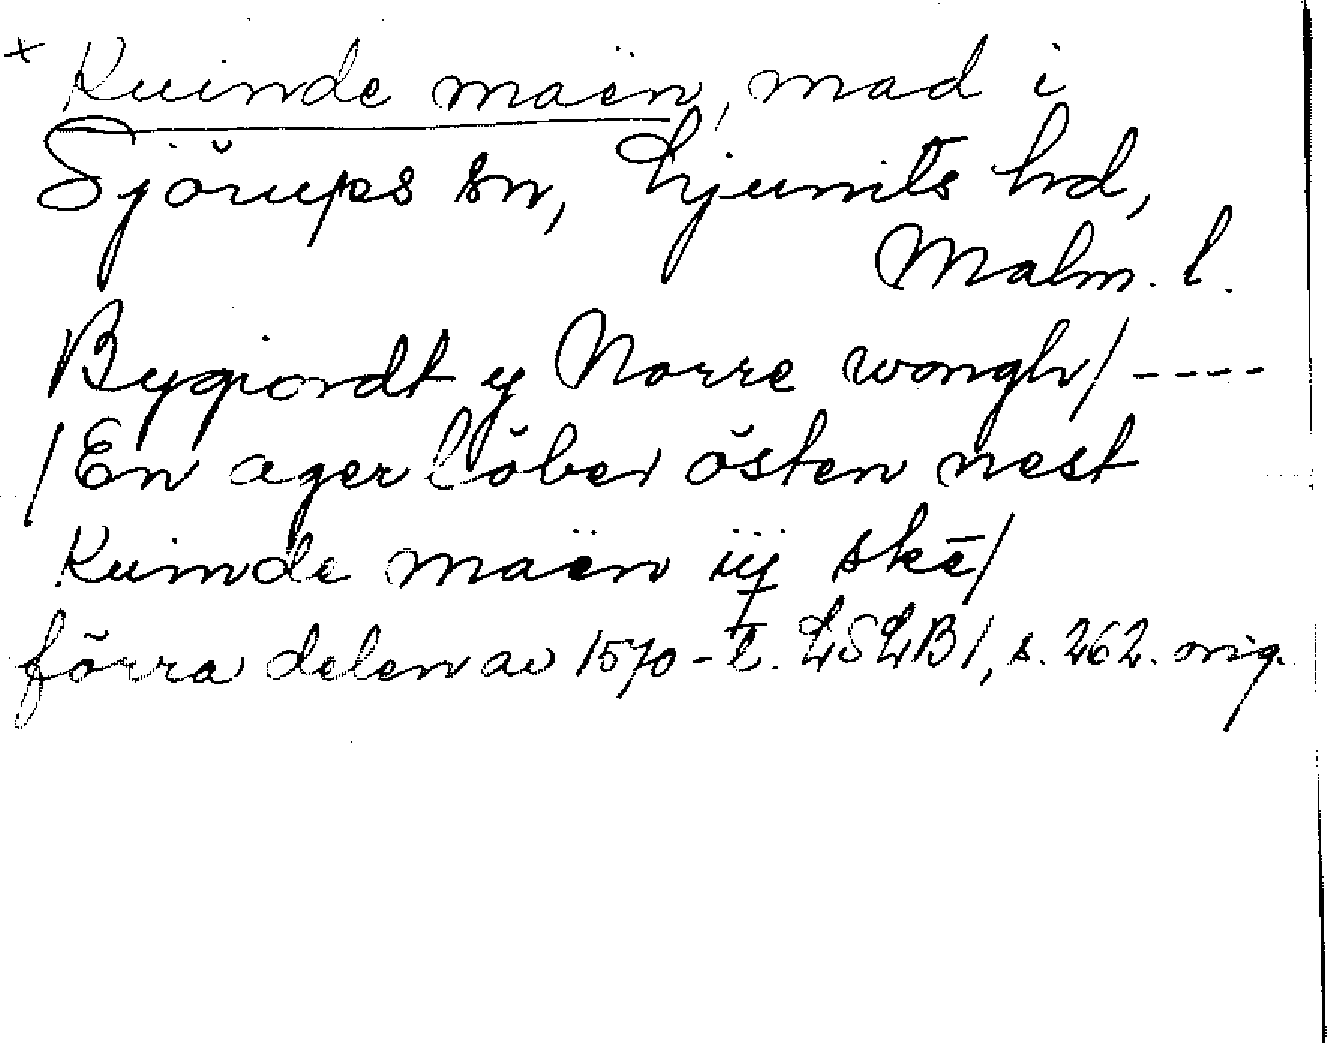 + Kuinde maën, mad i
Sjörups sn, Ljunits hd,
Malm. l.
Bygiordt y Norre wongh/ ----
/En ager löber östen nest
Kuinde maën iij skē/
förra delen av 1570-t. LSLB1, s. 262. orig.